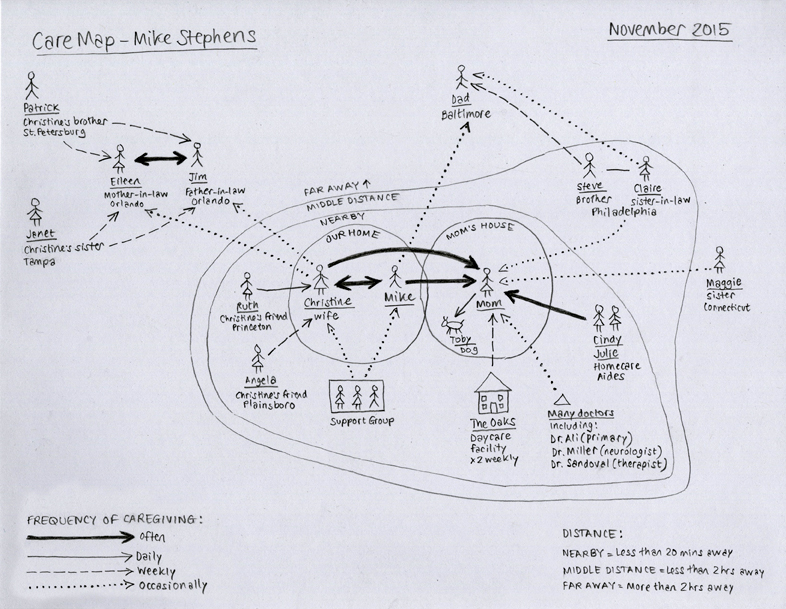 Care Map – Mike Stephens
November 2015
Patrick
Christine's brother
St. Petersburg
Eileen
Mother-in-law
Orlando
Jim
Father-in-law
Orlando
Janet
Christine's sister
Tampa
Dad
Baltimore
Steve
Brother
Claire
sister-in-law
Philadelphia
Maggie
Sister
Connecticut
FAR AWAY ↑
MIDDLE DISTANCE
NEARBY
OUR HOME
MOM'S HOUSE
Ruth
Christine's friend
Princeton
Christine
wife
Mike
Mom
Toby
Dog
Angela
Christine's friend
Plainsboro
Support Group
The Oaks
Daycare
facility
x2 weekly
Cindy
Julie
Homecare
Aides
Many doctors
including:
Dr. Ali (primary)
Dr. Miller (neurologist)
Dr. Sandoval (therapist)
FREQUENCY OF CAREGIVING:
Often
Daily
Weekly
Occasionally
DISTANCE:
NEARBY = Less than 20 mins away
MIDDLE DISTANCE = Less than 2hrs away
FAR AWAY = More than 2hrs away